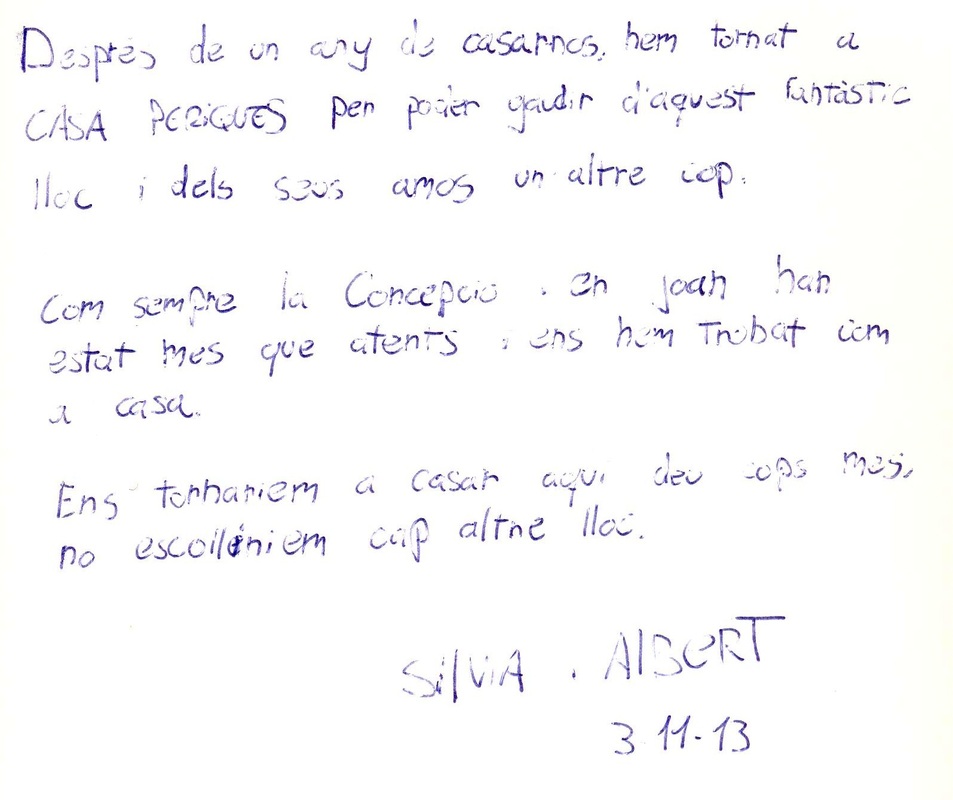 Després de un any de casarnos, hem tornat a
CASA PERIQUES per poder gaudir d'aquest fantàstic
lloc i dels seus amos un altre cop.
Com sempre la Concepcio i en joan han
estat mes que atents i ens hem Trobat com
a casa.
Ens tornariem a casar aqui deu cops mes,
no escolliriem cap altre lloc.
SilViA i AlBeRT
3-11-13